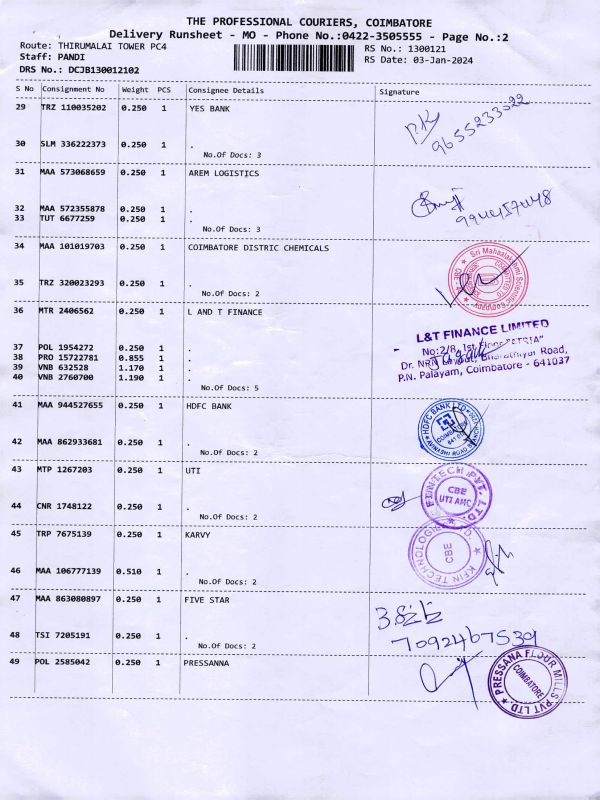 THE PROFESSIONAL COURIERS, COIMBATORE
Delivery Runsheet - MO - Phone No.:0422-3505555 - Page No.:2
Route: THIRUMALAI TOWER PC4
RS No.: 1300121
Staff: PANDI
RS Date: 03-Jan-2024
DRS No.: DCJB130012102
S No Consignment No Weight PCS Consignee Details Signature
29 TRZ 110035202 0.250 1 YES BANK
9655233322
30 SLM 336222373 0.250 1 .
No.Of Docs: 3
31 MAA 573068659 0.250 1 AREM LOGISTICS
32 MAA 572355878 0.250 1 .
33 TUT 6677259 0.250 1 .
No.Of Docs: 3
34 MAA 101019703 0.250 1 COIMBATORE DISTRIC CHEMICALS
35 TRZ 320023293 0.250 1 .
No.Of Docs: 2
36 MTR 2406562 0.250 1 L AND T FINANCE
L&T FINANCE LIMITED
No:2/8, 1st Floor
Dr. NRN Layout, Bharathiyar Road,
P.N. Palayam, Coimbatore - 641037
37 POL 1954272 0.250 1 .
38 PRO 15722781 0.855 1 .
39 VNB 632528 1.170 1 .
40 VNB 2760700 1.190 1 .
No.Of Docs: 5
41 MAA 944527655 0.250 1 HDFC BANK
HDFC BANK LTD
COIMBATORE
AVINASHI ROAD BRANCH
42 MAA 862933681 0.250 1 .
No.Of Docs: 2
43 MTP 1267203 0.250 1 UTI
KFINTECH PVT. LTD.
CBE
UTI AMC
44 CNR 1748122 0.250 1 .
No.Of Docs: 2
45 TRP 7675139 0.250 1 KARVY
KFIN TECHNOLOGIES
CBE
46 MAA 106777139 0.510 1 .
No.Of Docs: 2
47 MAA 863080897 0.250 1 FIVE STAR
7092467539
48 TSI 7205191 0.250 1 .
No.Of Docs: 2
49 POL 2585042 0.250 1 PRESSANNA
PRESSANA FLOUR MILLS PVT LTD.
COIMBATORE